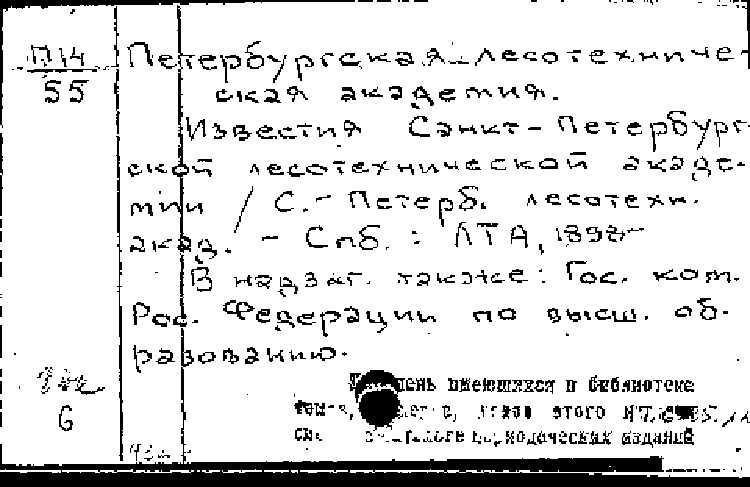 П14
55
Петербургская лесотехниче-
ская академия.
Известия Санкт-Петербург-
ской лесотехнической акаде-
мии / С.-Петерб. лесотехн.
акад. - Спб. : ЛТА, 1898-
В надзаг. также: Гос. ком.
Рос. Федерации по высш. об-
разованию.
имеющихся в библиотеке
этого
периодических изданий
6